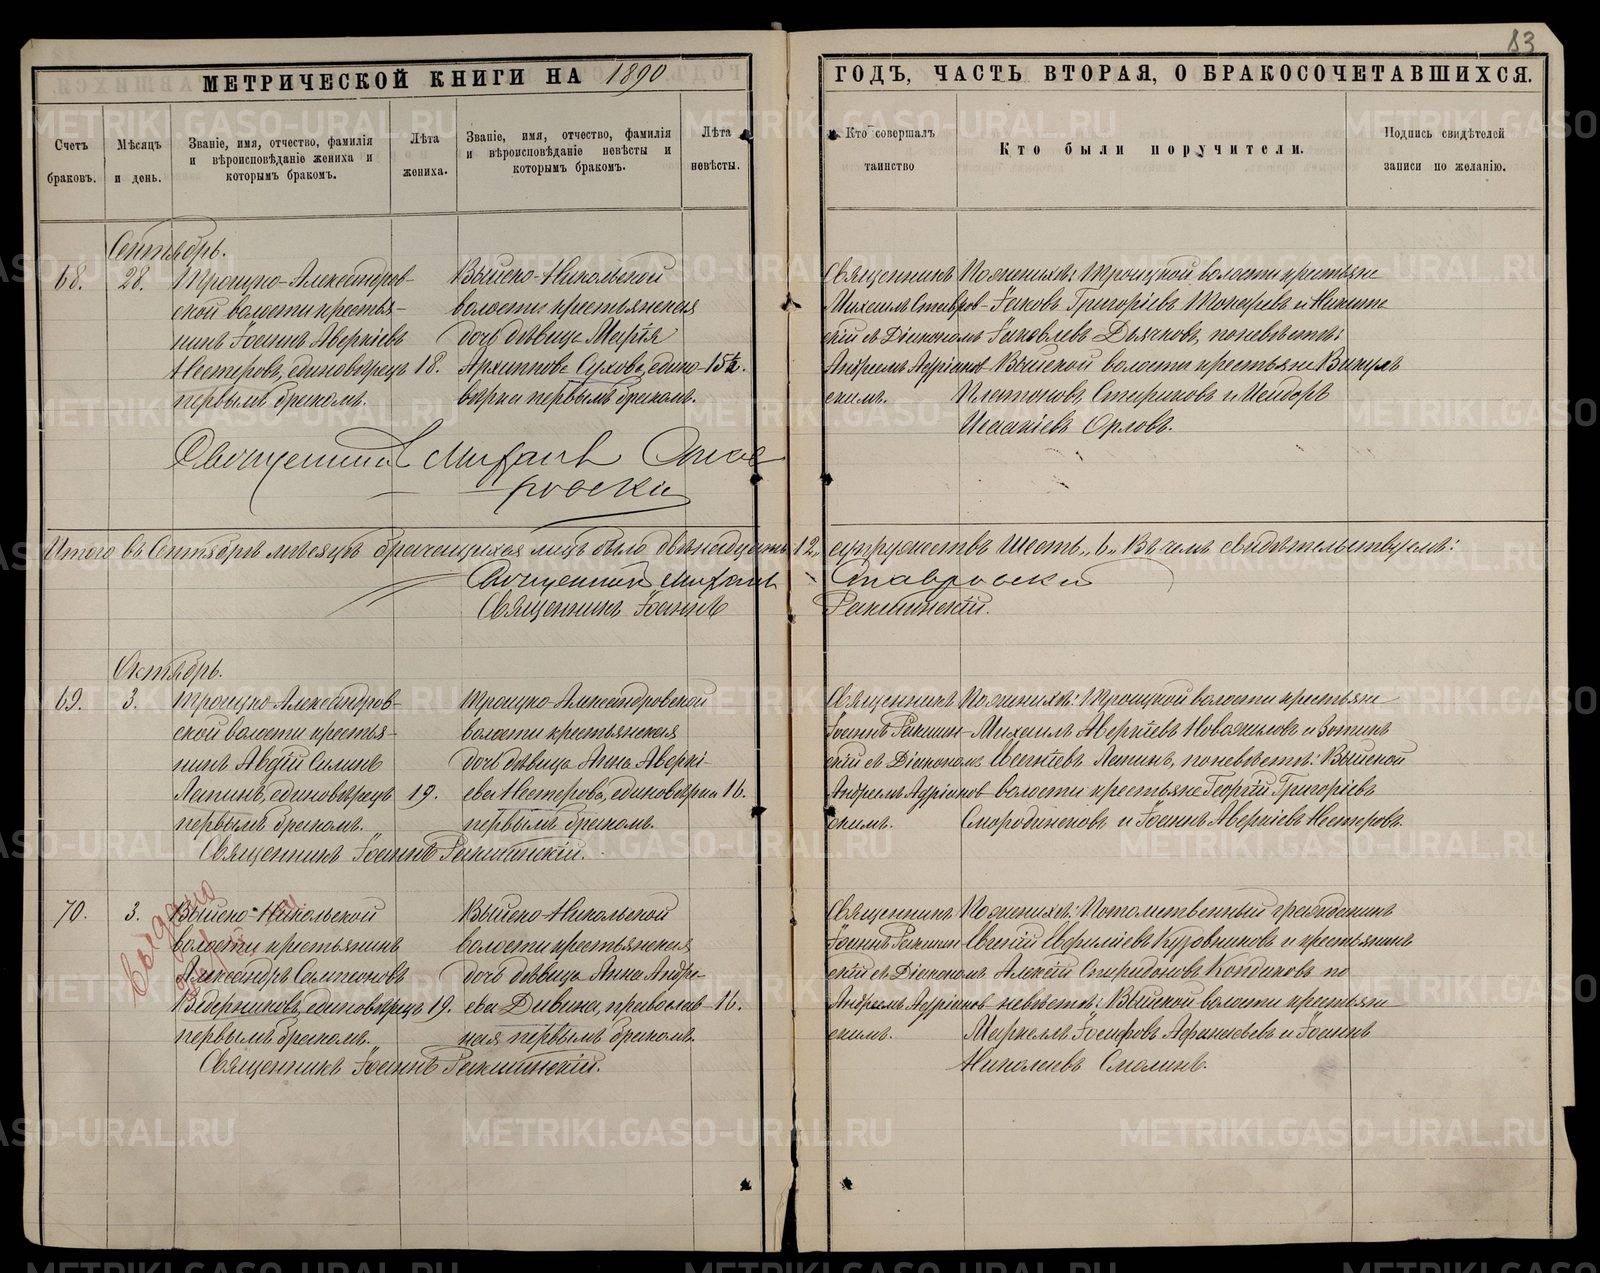 83
МЕТРИЧЕСКОЙ КНИГИ НА 1890
ГОДЪ, ЧАСТЬ ВТОРАЯ, О БРАКОСОЧЕТАВШИХСЯ.
Счетъ браковъ.
Мѣсяцъ и день.
Званіе, имя, отчество, фамилія
и вѣроисповѣданіе жениха и
которымъ бракомъ.
Лѣта жениха.
Званіе, имя, отчество, фамилія
и вѣроисповѣданіе невѣсты и
которымъ бракомъ.
Лѣта невѣсты.
Кто совершалъ
таинство
Кто были поручители.
Подпись свидѣтелей
записи по желанію.
Сентябрь.
68.
28.
Троицко-Александров-
ской волости крестья-
нинъ Іоаннъ Аверкіевъ
Нестеровъ, единовѣрецъ
первымъ бракомъ.
18.
Выйско-Никольской
волости крестьянская
дочь дѣвица Марія
Архиппова Сухова, едино-
вѣрка первымъ бракомъ.
15½.
Священникъ
Михаилъ Ставров-
скій съ Діакономъ
Андреемъ Адріанов
скимъ.
По женихѣ: Троицкой волости крестьяне
Іаковъ Григоріевъ Токаревъ и Никита
Іаковлевъ Дьячковъ, по невѣстѣ:
Выйской волости крестьяне Викулъ
Платоновъ Стариковъ и Исидоръ
Исаакіевъ Орловъ.
Священникъ Михаилъ Став
ровскій
Итого въ Сентябрѣ мѣсяцѣ брачащихся лицъ было двѣнадцать „12„ супружествъ шесть „6„ Въ чемъ свидѣтельствуемъ:
Священникъ Михаилъ Ставровскій
Священникъ Іоаннъ Ракшинскій.
Октябрь.
69.
3.
Троицко-Александров-
ской волости крестья-
нинъ Авдій Силинъ
Лапинъ, единовѣрецъ
первымъ бракомъ.
19.
Троицко-Александровской
волости крестьянская
дочь дѣвица Анна Аверкі-
ева Нестерова, единовѣрка
первымъ бракомъ.
16.
Священникъ
Іоаннъ Ракшин-
скій съ Діакономъ
Андреемъ Адріанов
скимъ.
По женихѣ: Троицкой волости крестьяне
Михаилъ Аверкіевъ Новожиловъ и Зотикъ
Лапинъ, по невѣстѣ: Выйской
волости крестьяне Георгій Григоріевъ
Смородинсковъ и Іоаннъ Аверкіевъ Нестеровъ.
Священникъ Іоаннъ Ракшинскій.
70.
3.
Выдано
Выйско-Никольской
волости крестьянинъ
Александръ Сампсоновъ
Ведерниковъ, единовѣрецъ
первымъ бракомъ.
19.
Выйско-Никольской
волости крестьянская
дочь дѣвица Анна Андре-
ева Дивина, православ-
ная первымъ бракомъ.
16.
Священникъ
Іоаннъ Ракшин
скій съ Діакономъ
Андреемъ Адріанов
скимъ.
По женихѣ: Потомственный гражданинъ
Евгеній Авриліевъ Кузовниковъ и крестьянинъ
Алексій Спиридоновъ Кондаковъ по
невѣстѣ: Выйской волости крестьяне
Маркеллъ Іосифовъ Афанасьевъ и Іоаннъ
Николаевъ Смолинъ.
Священникъ Іоаннъ Ракшинскій.
METRIKI.GASO-URAL.RU